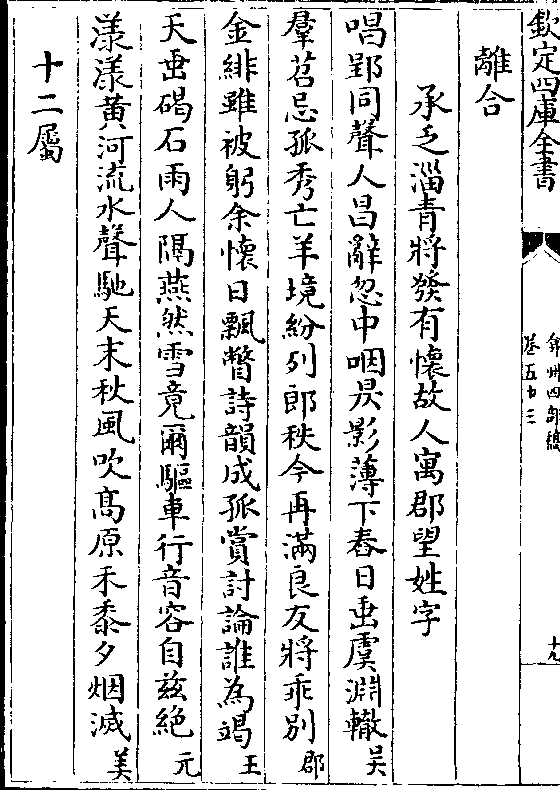 欽定四庫全書
弇州四部稿
卷五十三
十九
離合
承乏淄青將發有懷故人寓郡望姓字
唱郢同聲人昌辭忽中咽昃影薄下舂日乗虞淵轍吳
羣苕忌孤秀亡羊境紛列郎秩今再滿良友將乖別郡
金緋雖被躬余懷日飄瞥詩韻成孤賞討論誰為竭王
天垂碣石雨人隔燕然雪竟爾驅車行音容自兹絶元
漾漾黄河流水聲馳天末秋風吹髙原禾黍夕烟滅美
十二屬